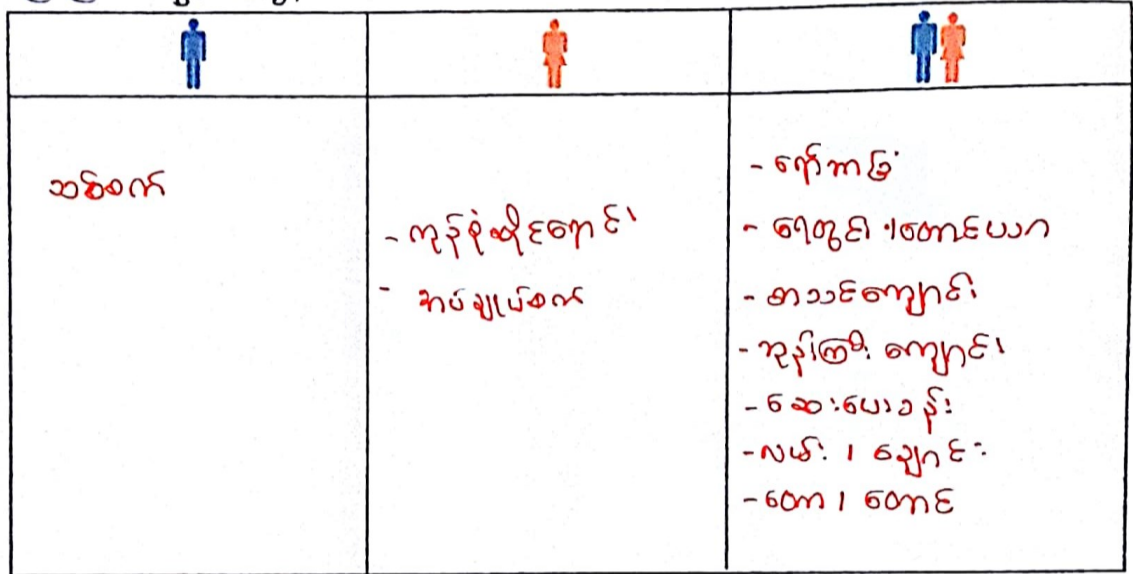 သစ်စက်
- ကုန်စုံဆိုင်ရောင်း
- အပ်ချုပ်စက်
- ရော်ဘာခြံ
- ရေတွင်း၊ တောင်ယာ
- စာသင်ကျောင်း
- ဘုန်းကြီး ကျောင်း
- ဆေးပေးခန်း
- လယ်၊ ချောင်း
- တော၊ တောင်